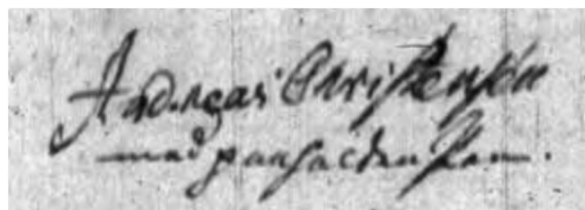 Andreas Christensen
med paaholden Pen.